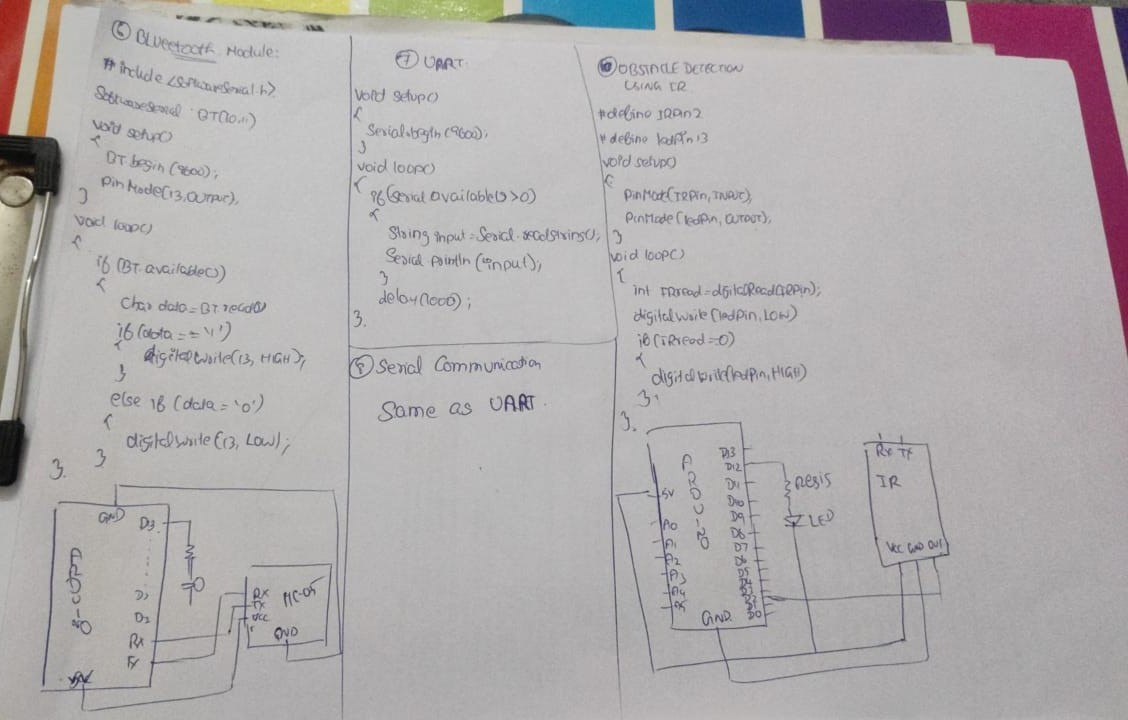 ⑥ Bluetooth Module:
#include <SoftwareSerial.h>
SoftwareSerial BT(10,11)
void setup()
{
BT.begin(9600);
PinMode(13,OUTPUT),
}
void loop()
{
if (BT.available())
{
Char data = BT.read()
if(data == '1')
{
digitalwrite(13, HIGH);
}
else if (data = '0')
{
digitalwrite(13, LOW);
}
3.
GND
D13
ARDUINO
D2
Rx
Tx
Rx
Tx
VCC
HC-05
GND
⑦ UART
void setup()
{
Serial.begin(9600);
}
void loop()
{
if(serial available()>0)
{
String input = Serial.readstring();
Serial.println(input);
}
delay(1000);
3.
⑧ Serial Communication
Same as UART.
OBSTACLE DETECTION
USING IR
#define IRPin 2
#define ledPin 13
void setup()
{
PinMode(IRPin, INPUT);
PinMode(ledPin, OUTPUT);
}
void loop()
{
int IRread = digitalRead(IRPin);
digitalwrite(ledPin, LOW)
if(IRread=0)
{
digitalwrite(ledPin, HIGH)
3.
3.
ARDUINO
5V
A0
A1
A2
A3
A4
A5
GND
D13
D12
D11
D10
D9
D8
D7
D6
D5
D0
Resis
LED
Rx Tx
IR
VCC GND OUT